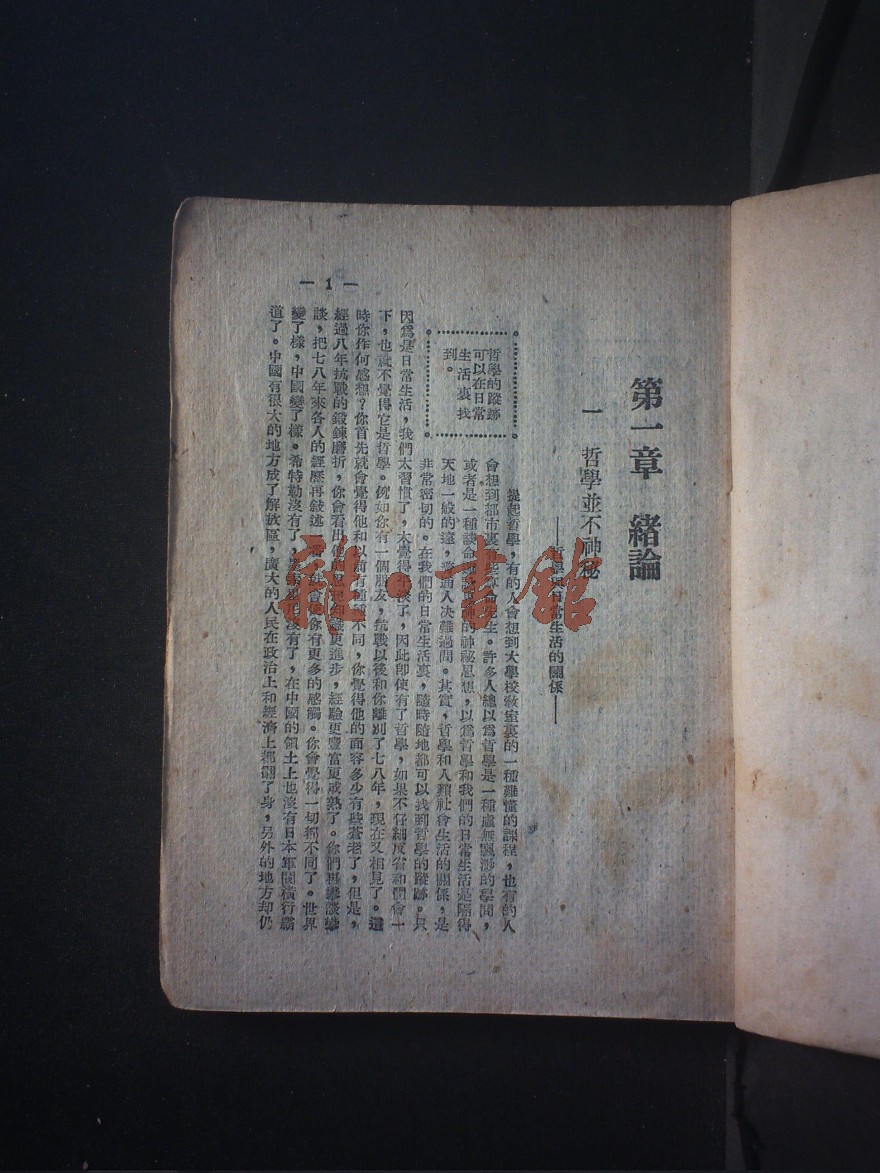 第一章　緒論
一　哲學並不神秘
——哲學與日常生活的關係——
哲學的蹤跡
可以在日常
生活裏找
到。
提起哲學，有的人會想到大學校教室裏的一種難懂的課程，也有的人
會想到都市裏一些算命先生。許多人總以爲哲學是一種虛無飄渺的學問，
或者是一種談命的神祕思想，以爲哲學和我們的日常生活是隔得
天地一般的遠，普通人决難過問。其實，哲學和人類社會生活的關係，是
非常密切的。在我們的日常生活裏，隨時隨地都可以找到哲學的蹤跡。只
因爲是日常生活，我們太習慣了，太覺得平淡了，因此即使有了哲學，如果不仔細反省和體會一
下，也就不覺得它是哲學。例如你有一個朋友，抗戰以後和你離別了七八年，現在又相見了。這
時你作何感想？你首先就會覺得他和以前有種種不同，你覺得他的面容多少有些蒼老了，但是，
經過八年抗戰的鍛鍊磨折，你會看出他的思想知識更進步，經驗更豐富更成熟了。你們再談談
談，把七八年來各人的經歷再敍述一番，使你有更多的感觸。你會覺得一切都不同了。世界
變了樣，中國變了樣。希特勒沒有了，沒有了，在中國的領土上也沒有日本軍閥橫行霸
道了。中國有很大的地方成了解放區，廣大的人民在政治上和經濟上都翻了身，另外的地方却仍
— 1 —
龍・書館